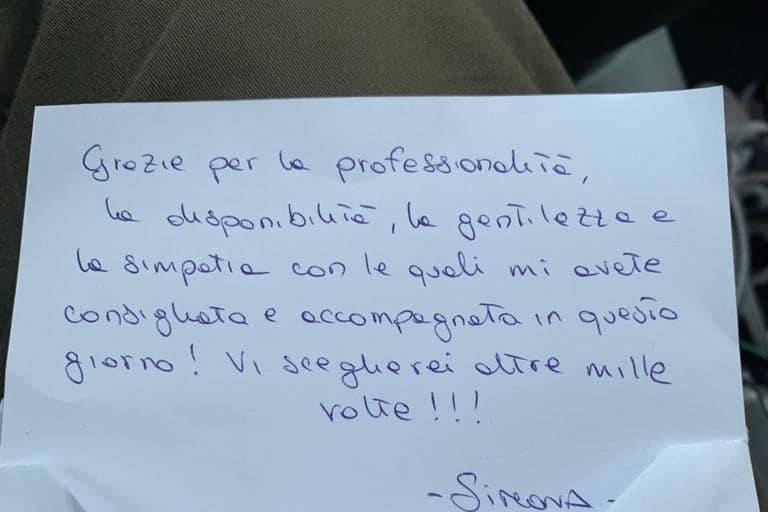 Grazie per la professionalità,
la disponibilità, la gentilezza e
la simpatia con le quali mi avete
consigliata e accompagnata in questo
giorno! Vi sceglierei altre mille
volte!!!
- Simona -